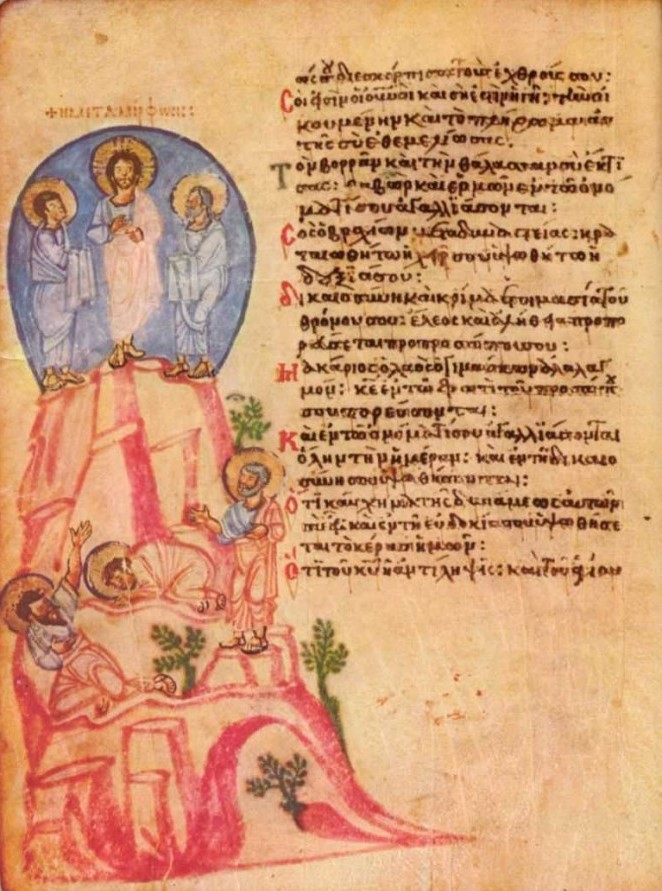 + Η ΜΕΤΑΜΟΡΦΩCΙC:
διεσκόρπισας τοὺς ἐχθρούς σου:
Σοί εἰσιν οἱ οὐνοὶ καὶ σή ἐστιν ἡ γῆ: τὴν οἰ
κουμένην καὶ τὸ πλήρωμα αὐ
τῆς σὺ ἐθεμελίωσας.
Τὸν βορρᾶν καὶ τὴν θάλασσαν σὺ ἔκτι
σας: θαβὼρ καὶ ερμὼν ἐν τῶ ὀνό
ματί σου ἀγαλλιάσονται:
Σὸς ὁ βραχίων μετὰ δυναστείας: κρα
ταιωθήτω ἡ χείρ σου ὑψωθήτω ἡ
δεξιά σου:
Δικαιοσύνη καὶ κρίμα ἑτοιμασία τοῦ
θρόνου σου: ἔλεος καὶ ἀλήθεια προπο
ρεύσεται πρὸ προσώπου σου:
Μακάριος ὁ λαὸς ὁ γινώσκων ἀλαλαγ
μόν: κε ἐν τῶ φωτὶ τοῦ προσώπου
σου πορεύσονται:
Καὶ ἐν τῶ ὀνόματί σου ἀγαλλιάσονται
ὅλην τὴν ἡμέραν: καὶ ἐν τῆ δικαιο
σύνη σου ὑψωθήσονται:
Ὅτι καύχημα τῆς δυνάμεως αὐτῶν
σὺ εἶ: καὶ ἐν τῆ εὐδοκία σου ὑψωθήσε
ται τὸ κέρας ἡμῶν:
Ὅτι τοῦ κυ ἡ ἀντίληψις: καὶ τοῦ ἁγίου